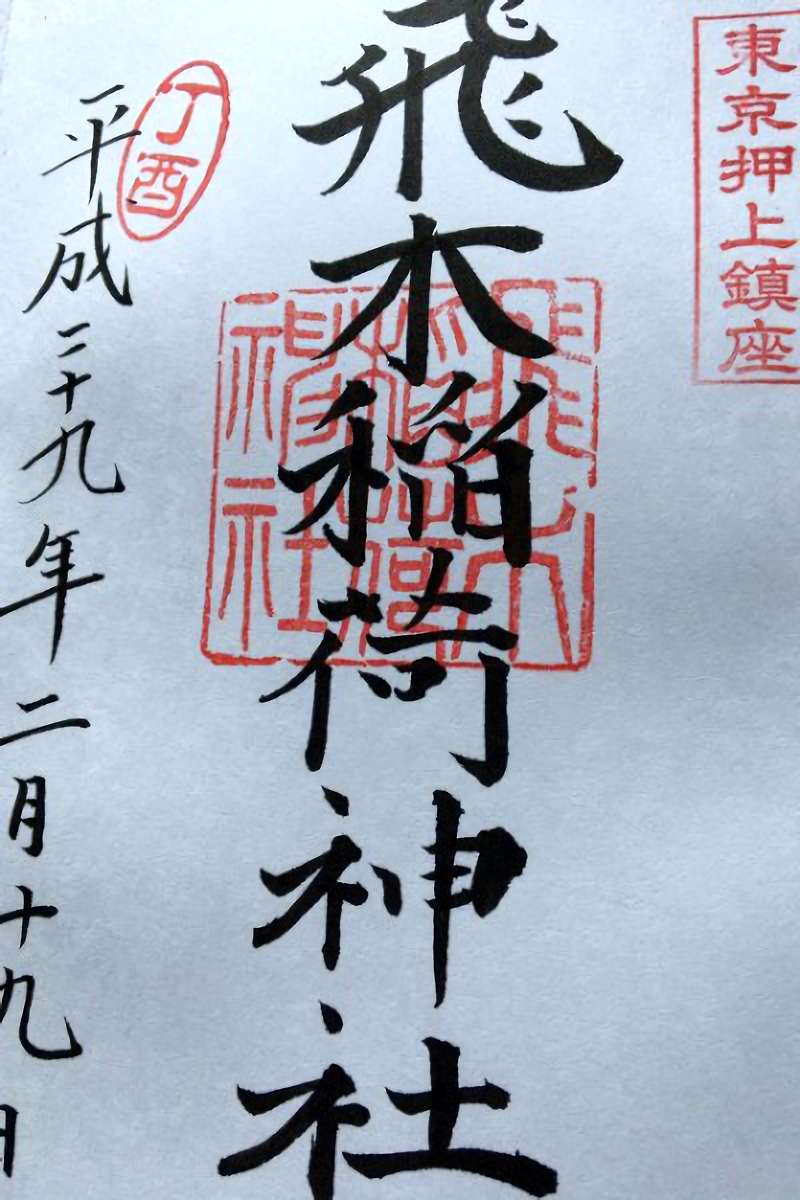 東京押上鎮座
飛木稲荷神社
飛木稲荷神社
丁酉
平成二十九年二月十九日